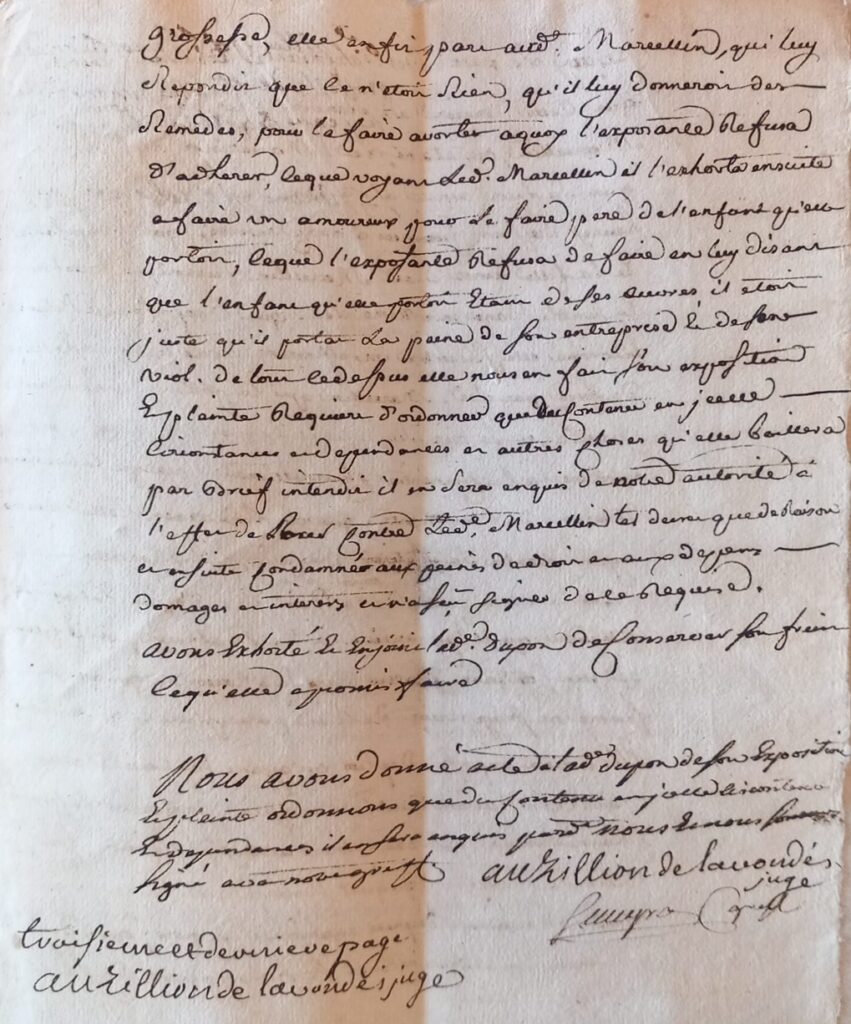 grossesse, elle en fit part aud. Marcellin, qui luy
Repondit que ce n'etoit Rien, qu'il luy donneroit des
Remedes, pour la faire avorter a quoy l'exposante Refusa
d'adherer, ce que voyant Led. Marcellin il l'exhorta ensuitte
a faire un amoureux pour le faire pere de l'enfant qu'elle
portoit, ce que l'exposante Refusa de faire en luy disant
que l'enfant qu'elle portoit Etant de ses œuvres il etoit
juste qu'il portat La peine de son entreprise & de son
viol. de tout ce dessus elle nous en fait son exposition
& plainte Requiert d'ordonner que du Contenu en jcelle
Circonstances et dependances et autres choses qu'elle baillera
par brief intendit il en sera enquis de notre autorité à
l'effet de Contre Led. Marcellin tel decret que de Raison
et ensuite Condamné aux peines de droit et aux depens
domages et interets et n'a sçu signer de ce Requise.
avons Exhorté & Enjoint lad. dupon de Conserver son fruit
ce qu'elle a promis faire
Nous avons donné acte à lad. dupon de son Exposition
& plainte ordonnons que du Contenu en jcelle circonstances
& dependances il en sera enquis pard. Nous & nous sommes
signé avec notre greff.
auzillion de lavondés
juge
greff
troisieme et derniere page
auzillion de lavondés juge